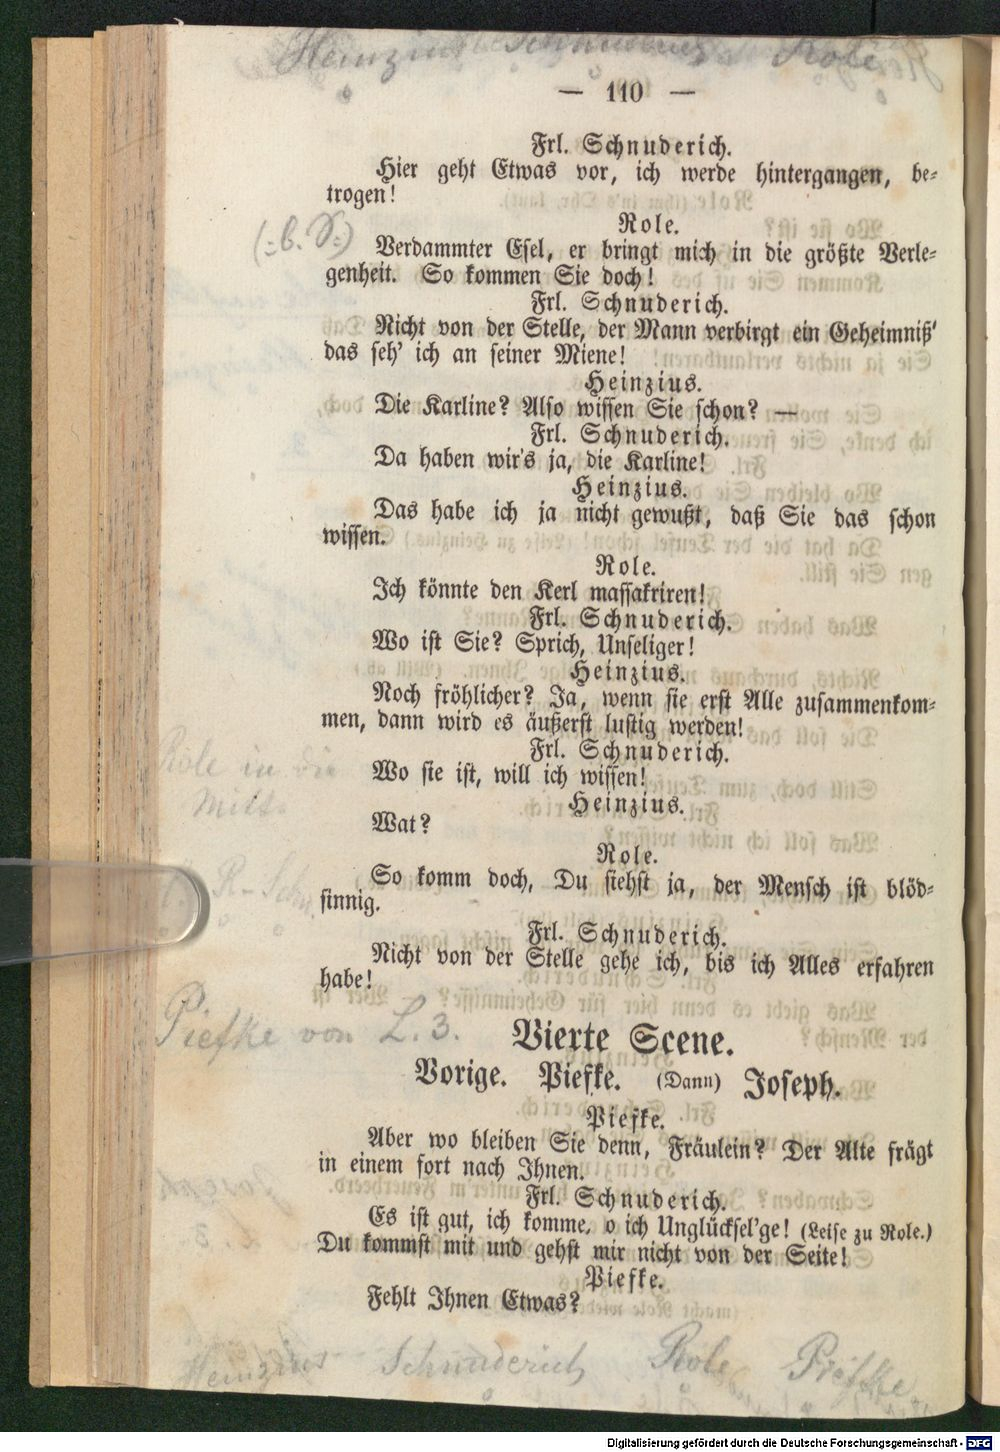 Heinzius Schnuderich Role
— 110 —
Frl. Schnuderich.
Hier geht Etwas vor, ich werde hintergangen, be-
trogen!
Role.
(:b. S:)
Verdammter Esel, er bringt mich in die größte Verle-
genheit. So kommen Sie doch!
Frl. Schnuderich.
Nicht von der Stelle, der Mann verbirgt ein Geheimniß'
das seh' ich an seiner Miene!
Heinzius.
Die Karline? Also wissen Sie schon? —
Frl. Schnuderich.
Da haben wir's ja, die Karline!
Heinzius.
Das habe ich ja nicht gewußt, daß Sie das schon
wissen.
Role.
Ich könnte den Kerl massakriren!
Frl. Schnuderich.
Wo ist Sie? Sprich, Unseliger!
Heinzius.
Noch fröhlicher? Ja, wenn sie erst Alle zusammenkom-
men, dann wird es äußerst lustig werden!
Frl. Schnuderich.
Role in die
Mitte
Wo sie ist, will ich wissen!
Heinzius.
Wat?
Role.
So komm doch, Du siehst ja, der Mensch ist blöd-
sinnig.
Frl. Schnuderich.
Nicht von der Stelle gehe ich, bis ich Alles erfahren
habe!
Piefke von L. 3.
Vierte Scene.
Vorige. Piefke. (Dann) Joseph.
Piefke.
Aber wo bleiben Sie denn, Fräulein? Der Alte frägt
in einem fort nach Ihnen.
Frl. Schnuderich.
Es ist gut, ich komme, o ich Unglücksel'ge! (Leise zu Role.)
Du kommst mit und gehst mir nicht von der Seite!
Piefke.
Fehlt Ihnen Etwas?
Heinzius Schnuderich Role Piefke
Digitalisierung gefördert durch die Deutsche Forschungsgemeinschaft - DFG